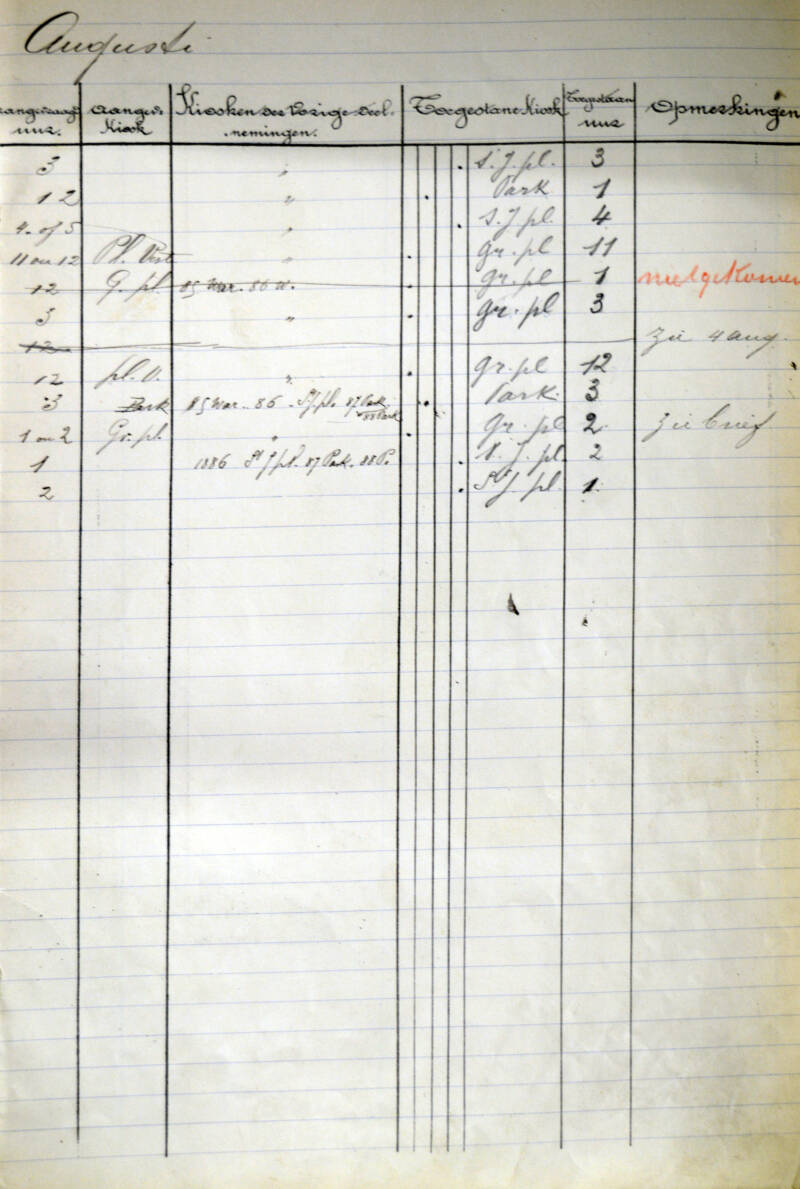 Augusti
aangevraagd uur. Aangev. Kiosk Kiosken der vorige deel-nemingen. Toegestane Kiosk Toegestaan uur Opmerkingen
3 " S. J. pl. 3
12 " Park 1
4. of 5 " S. J pl. 4
11 ou 12 Pl. " gr. pl 11
12 G. pl. 85 War. 86 W. gr. pl 1
3 " gr. pl 3
12 Zie 4 aug.
12 pl. V. " gr. pl 12
3 Park 85 War. 86 St J pl. 87 Park 88 Park Park. 3
1 ou 2 Gr. pl. " gr. pl 2 Zie brief
1 1886 St J pl. 87 Park. 88 P. S. J. pl. 2
2 St J. pl. 1